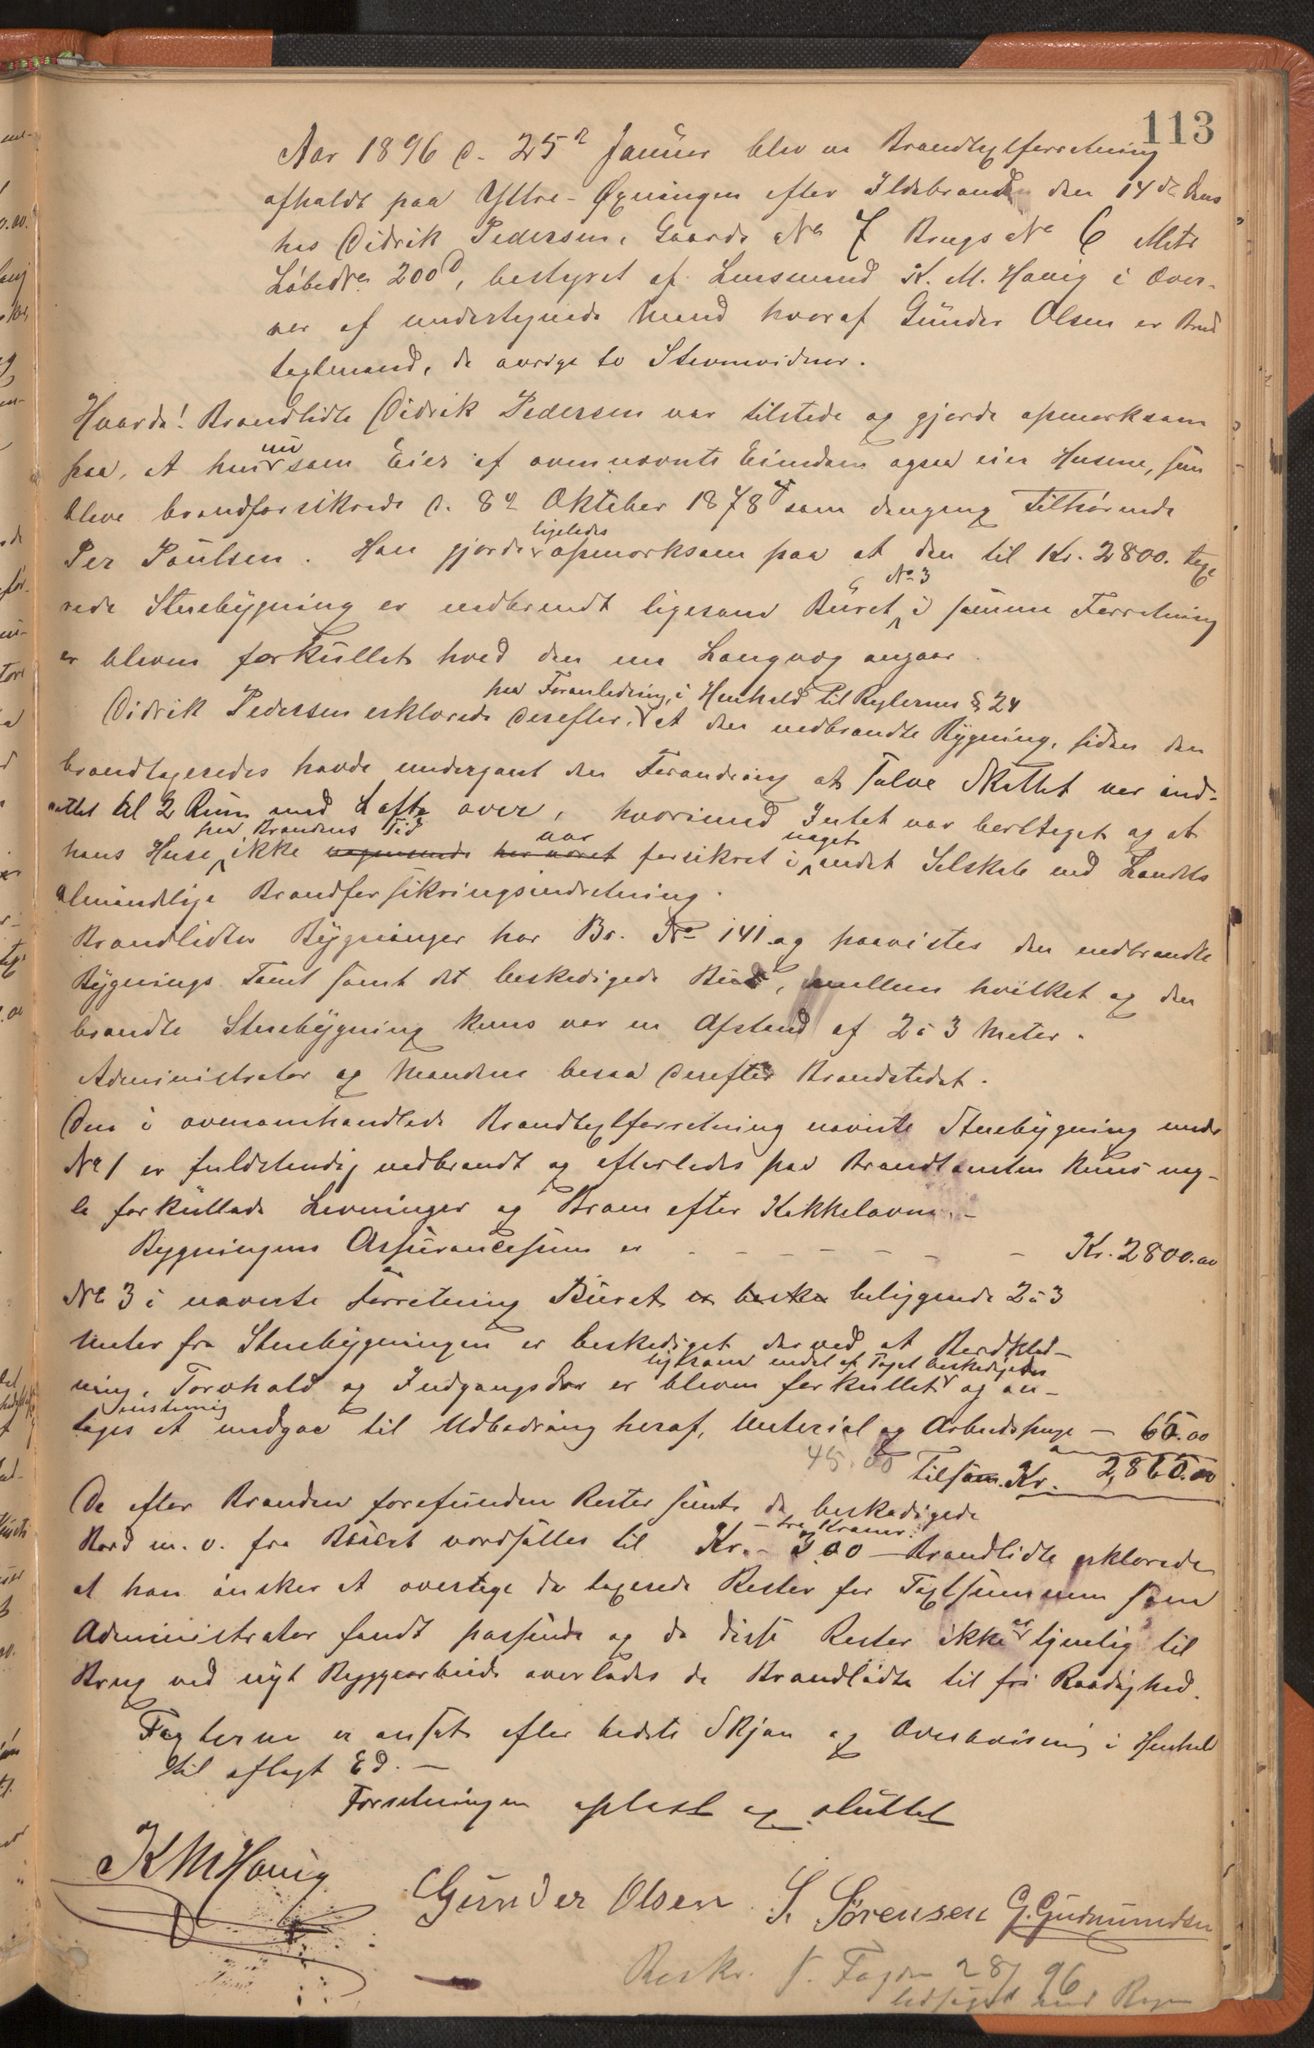 113
Aar 1896 d. 25de Januar blev en Brandtaxtforretning
afholdt paa Yttre-Øxningen efter Ildebrand den 14de dens
hos Didrik Pedersen, Gaards No 7 Brugs No 6 Mtr
LøbeNo 200d, bestyret af Lensmand K. M. Hovig i Over-
vær af undertegnede Mænd hvoraf Gunder Olsen er Brand
taxtmand, de øvrige to Stevnevidner.
Hvorda! Brandlidte Didrik Pedersen var tilstede og gjorde opmærksom
paa, at han nu som Eier af ovennævnte Eiendom ogsaa eier Husene, som
bleve brandforsikrede d. 8de Oktober 1878 som dengang Tilhørende
Per Paulsen. Han gjorde ligeledes opmærksom paa at den til Kr. 2800. taxe
rede Stuebygning er nedbrændt ligesom Buret No 3 i samme Forretning
er bleven forkullet hvad den ene Langvæg angaar.
paa Foranledning, i Henhold til Reglernes § 24
Didrik Pedersen erklærede derefter, at den nedbrændte Bygning, siden den
brandtaxeredes havde undergaaet den Forandring at Halve Skottet var ind-
rettet til 2 Rum med Loft over, hvorimod Intet var borttaget og at
hans Huse paa Brandens Tid ikke var forsikret i noget andet Selskab end Landets
almindelige Brandforsikringsindretning.
Brandlidtes Bygninger har Br. No 141 og paavistes den nedbrændte
Bygnings Tomt samt det beskadigede Bur, mellem hvilket og den
brændte Stuebygning kuns var en Afstand af 2 à 3 Meter.
Administrator og Mændene besaa derefter Brandstedet.
Den i ovenomhandlede Brandtaxtforretning nævnte Stuebygning under
No 1 er fuldstændig nedbrændt og efterlodes paa Brandtomten kuns nog-
le forkullede Levninger og Brom efter Kakkelovne. -
Bygningens Assurancesum er - - - - - - - Kr. 2800.00
No 3 i nævnte Forretning Buret er beska beliggende 2 à 3
Meter fra Stuebygningen er beskadiget derved at Bordklæd-
ning, Torvhald og Indgangsdør er bleven forkullet ligesom endel af Taget beskadiget og an-
tages at medgaa til Udbedring heraf, Material og Arbeidspenge - 65.00
45.00 Tilsam. Kr. 2,865.00
De efter Branden forefundne Rester samt de beskadigede
Bord m. v. fra Buret værdsattes til Kr. - 3.00 - tre Kroner. Brandlidte erklærede
at han ønsker at overtage de taxerede Rester for Taxtsummen som
Administrator fandt passende og da disse Rester ikke er tjenlig til
Brug ved nyt Byggearbeide overlades de Brandlidte til fri Raadighed.
Taxterne er ansat efter bedste Skjøn og Overbevisning i Henhold
til aflagt Ed. -
Forretningen oplæst og sluttet
K M Hovig
Gunder Olsen S. Sørensen G. Gudmundsen
Beskr. f. Fogden 28/1 96
ledsaget med Regn